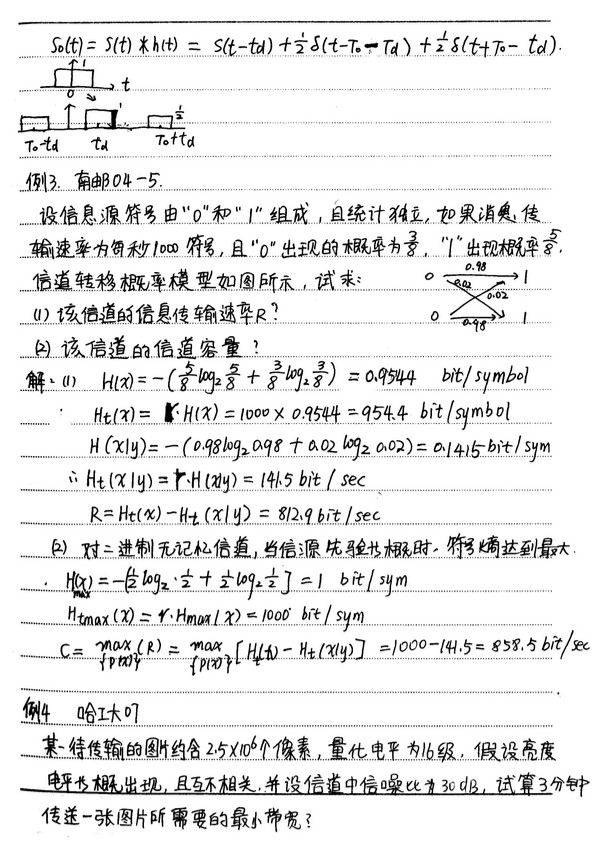 S₀(t) = S(t) * h(t) = S(t-td) + ½ δ(t-T₀-Td) + ½ δ(t+T₀- td).
1
0 t
1 ½
T₀-td td T₀+td
例3. 南邮04-5.
设信息源符号由"0"和"1"组成，且统计独立，如果消息传
输速率为每秒1000符号，且"0"出现的概率为3/8，"1"出现概率5/8.
信道转移概率模型如图所示，试求:
0 0.98 1
0.02 0.02
0 0.98 1
(1) 该信道的信息传输速率R？
(2) 该信道的信道容量？
解: (1) H(x) = -(5/8 log₂ 5/8 + 3/8 log₂ 3/8) = 0.9544 bit/symbol
Ht(x) = r·H(x) = 1000 × 0.9544 = 954.4 bit/symbol
H(x|y) = -(0.98log₂0.98 + 0.02 log₂ 0.02) = 0.1415 bit/sym
∴ Ht(x|y) = r·H(x|y) = 141.5 bit / sec
R = Ht(x) - Ht(x|y) = 812.9 bit/sec
(2) 对二进制无记忆信道，当信源先验等概时，符号熵达到最大.
H(x)max = -[½ log₂·½ + ½ log₂ ½] = 1 bit/sym
Htmax(x) = r·Hmax(x) = 1000 bit/sym
C = max{p(x)}(R) = max{p(x)} [Ht(x) - Ht(x|y)] = 1000-141.5 = 858.5 bit/sec
例4 哈工大07
某一待传输的图片约含2.5×10⁶个像素，量化电平为16级，假设亮度
电平等概出现，且互不相关，并设信道中信噪比为30dB，试算3分钟
传送一张图片所需要的最小带宽？